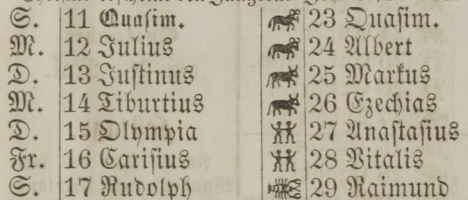 S. 11 Quasim. 23 Quasim.
M. 12 Julius 24 Albert
D. 13 Justinus 25 Markus
M. 14 Tiburtius 26 Ezechias
D. 15 Olympia 27 Anastasius
Fr. 16 Carisius 28 Vitalis
S. 17 Rudolph 29 Raimund